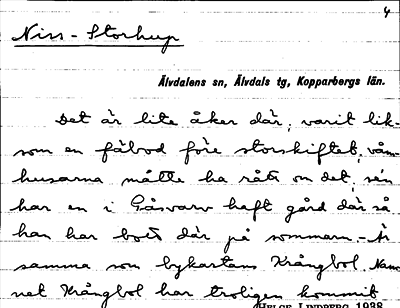 4
Niss-Storhup
Älvdalens sn, Älvdals tg, Kopparbergs län.
Det är lite åker där, varit lik-
som en fäbod före storskiftet, våm-
husarna måtte ha rått om det, sen
har en i Gåsvarv haft gård där så
han har bott där på sommarn. – Är
samma som bykartans Krångbol. Nam-
net Krångbol har troligen kommit
HELGE LINDBERG 1938